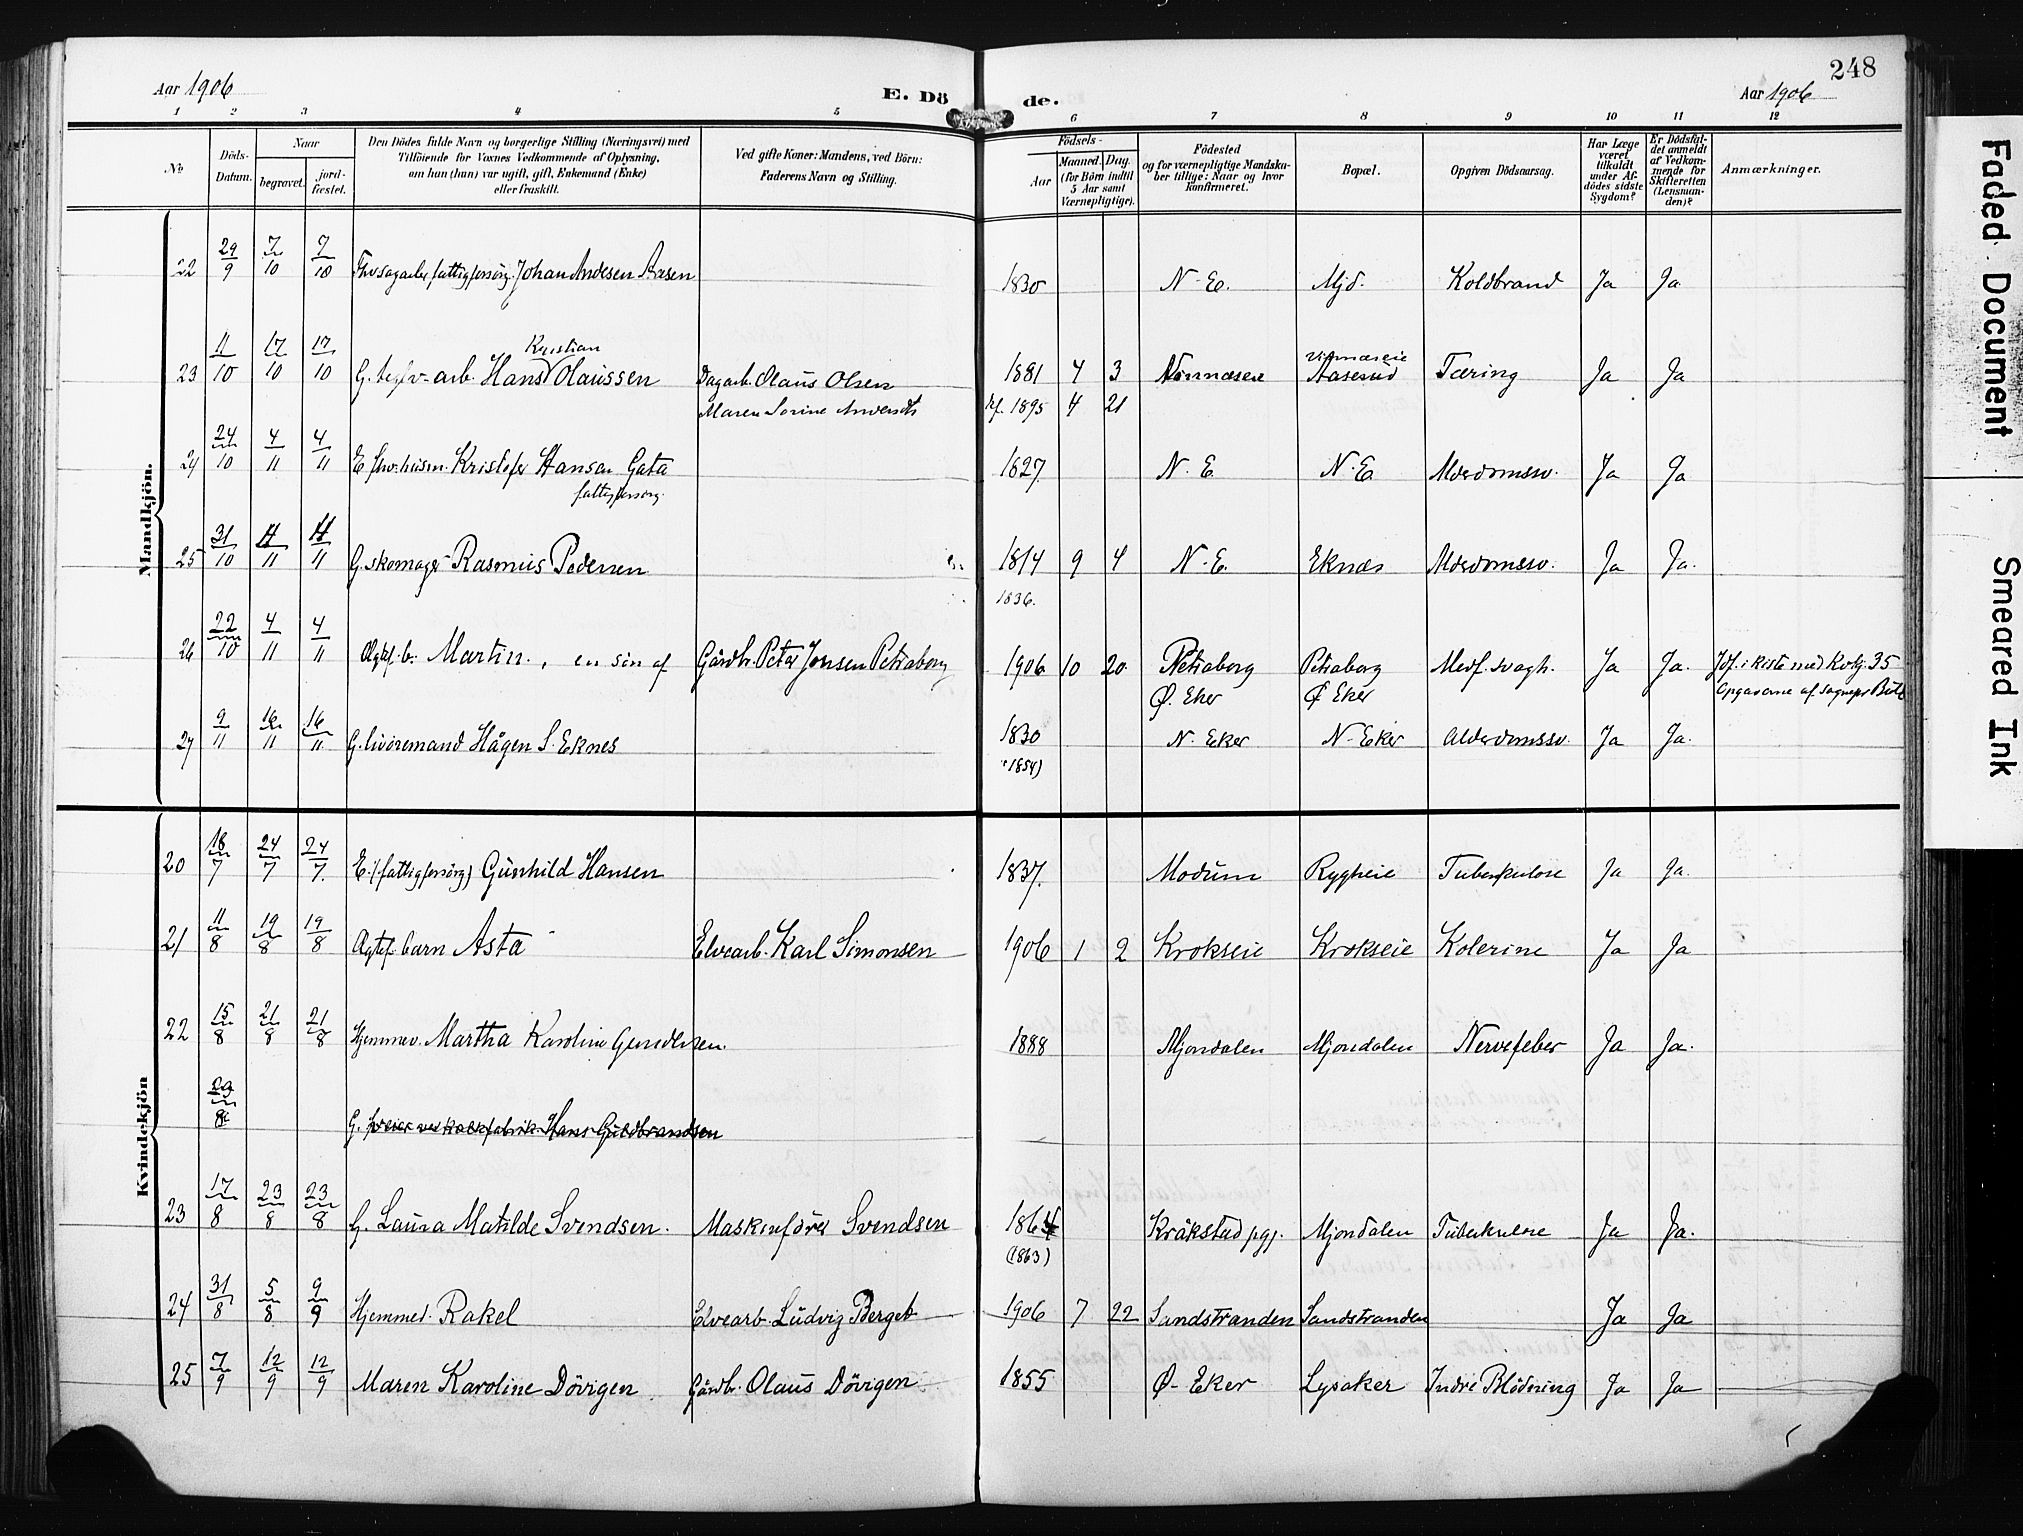 248
Aar 1906
E. Dö de.
Aar 1906
1 2 3 4 5 6 7 8 9 10 11 12
No
Döds-Datum.
Naar
begravet.
jordfæstet.
Den Dödes fulde Navn og borgerlige Stilling (Næringsvei) med
Tilföiende for Voxnes Vedkommende af Oplysning,
om han (hun) var ugift, gift, Enkemand (Enke)
eller fraskilt.
Ved gifte Koner: Mandens, ved Börn:
Faderens Navn og Stilling.
Födsels-
Aar
Maaned. Dag.
(for Börn indtil
5 Aar samt
Værnepligtige).
Födested
og for værnepligtige Mandskaber
tillige: Naar og hvor
Konfirmeret.
Bopæl.
Opgiven Dödsaarsag.
Har Læge
været
tilkaldt
under Afdödes
sidste
Sygdom?
Er Dödsfaldet
anmeldt
af Vedkommende
for
Skifteretten
(Lensmanden)?
Anmærkninger.
Mandkjön.
22 29/9 7/10 7/10 fattigforsörg. Johan Andersen Aasen 1830 N. E. Mjd. Koldbrand Ja Ja
Kristian
23 11/10 17/10 17/10 arb. Hans Olaussen Dagarb. Olaus Olsen 1881 4 3 Aaserud Tæring Ja Ja
Maren Sorine kf. 1895 4 21
24 24/10 4/11 4/11 E. Kristofer Hansen Gata 1827 N. E. N. E. Alderdomssv. Ja Ja
fattigforsörg.
25 31/10 11/11 11/11 G. skomager Rasmus Pedersen 1814 9 4 N. E. Eknæs Alderdomssv. Ja Ja.
1836.
26 22/10 4/11 4/11 Ægtef. b. Martin, en sön af Gårdbr. Peter Jensen Petraborg 1906 10 20 Petraborg Petraborg Medf. svagh. Ja Ja. Jdf. i kiste med Kvkj. 35
Ø. Eker Ø Eker Opgaverne af sognepr
27 9/11 16/11 16/11 G. livöremand Hågen S. Eknes 1830 N. Eker N. Eker Alderdomssv. Ja Ja.
1854)
Kvindekjön
20 18/7 24/7 24/7 E. (fattigforsörg) Gunhild Hansen 1837. Modum Rygheie Tuberkulose Ja Ja.
21 11/8 19/8 19/8 Ægtef. barn Asta Elvearb. Karl Simonsen 1906 1 2 Krokseie Krokseie Kolerine Ja Ja
22 15/8 21/8 21/8 Hjemmev. Martha Karoline Gundersen. 1888 Mjondalen Mjondalen Nervefeber Ja Ja.
29/8 G. Hans Guldbrandsen
23 17/8 23/8 23/8 G. Laura Matilde Svendsen. Maskinförer Svendsen 1864 Kråkstad pgj. Mjondalen Tuberkulose Ja Ja.
(1863)
24 31/8 5/8 9/9 Hjemmed. Rakel Elvearb. Ludvig Berget 1906 7 22 Sandstranden Sandstranden Ja Ja
25 7/9 12/9 12/9 Maren Karoline Dövigen Gårdbr. Olaus Dövigen 1855 Ø. Eker Lysaker Indre Blödning Ja Ja
Faded Document
Smeared Ink